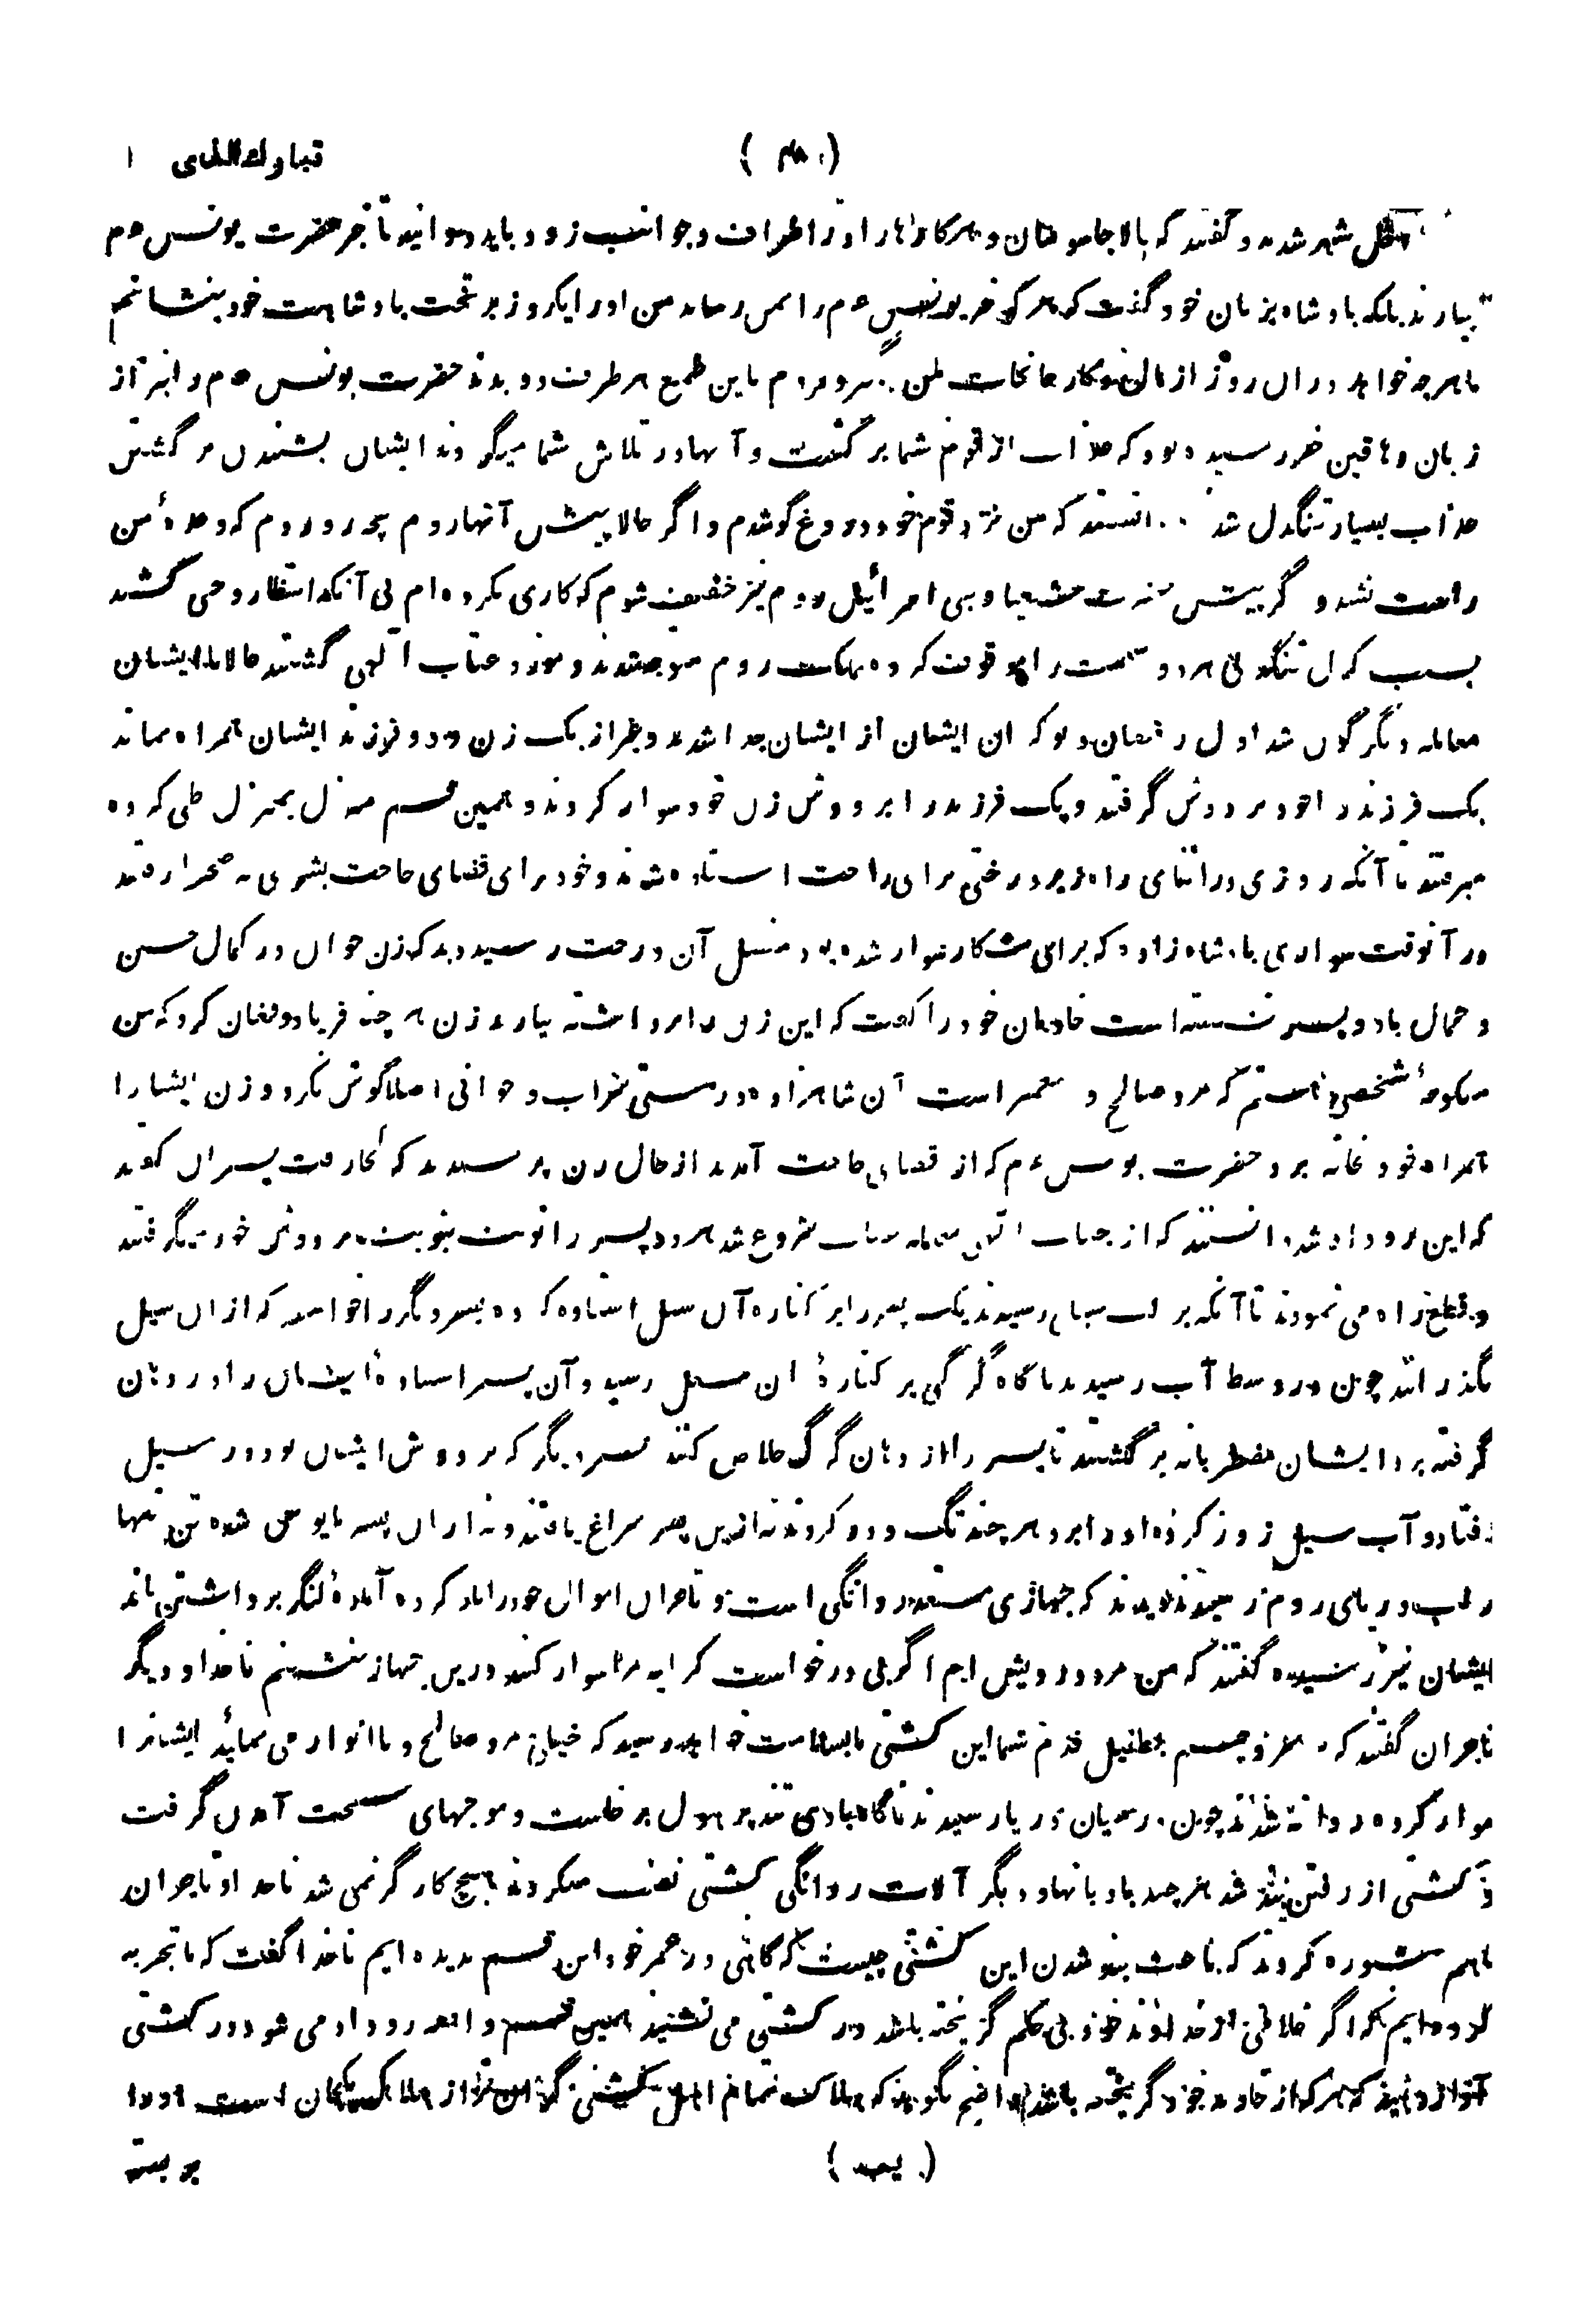 تبارك الذى ١
داخل شهر شدند و گفتند که حالا جاسوسان و هرکارها را در اطراف و جوانب زود باید دوانید تا خبر حضرت یونس عم
بیارند بلکه بادشاه بزبان خود گفت که هر که خبر یونس عم را بمن رساند من او را یکروز بر تخت بادشاهت خود بنشانم
تا هرچه خواهد در آن روز از مال و کارخانجات من مردم باین طمع هر طرف دویدند حضرت یونس عم را خبر از
زبان دهاقین خبر رسیده بود که عذاب از قوم شما برگشت و آنها در تلاش شما میگردند ایشان بشنیدن برگشتن
عذاب بسیار تنگدل شدند دانستند که من نزد قوم خود دروغ گو شدم و اگر حالا پیش آنها روم بچه رو روم که وعدهٔ من
راست نشد و گر پیش حضرت شعیا و بنی اسرائیل روم نیز خفیف شوم که کاری نکرده ام بی آنکه انتظار وحی کشند
بسبب کمال تنگدلی هر دو سمت را موقوف کرده بملک روم متوجه شدند و مورد عتاب الهی گشتند حالا با ایشان
معامله دیگرگون شد اول رفیقان و نوکران ایشان از ایشان جدا شدند و بغیر از یک زن و دو فرزند ایشان همراه نماند
یک فرزند را خود بر دوش گرفتند و یک فرزند را بر دوش زن خود سوار کردند و همین قسم منزل بمنزل طی کرده
میرفتند تا آنکه روزی در اثنای راه زیر درختی برای راحت استاده شدند و خود برای قضای حاجت بشری به صحرا رفتند
در آنوقت سواری بادشاه زاده که برای شکار سوار شده بود متصل آن درخت رسید دید که زن جوان در کمال حسن
و جمال با دو پسر نشسته است خادمان خود را گفت که این زن را برداشته بیارند زن هرچند فریاد و فغان کرد که من
منکوحهٔ شخصی هستم که مرد صالح و پیغمبر است آن شاهزاده در مستی شراب و جوانی اصلا گوش نکرد و زن ایشان را
همراه خود بخانه برد حضرت یونس عم که از قضای حاجت آمدند از حال زن پرسیدند که کجا رفت پسران گفتند
که این رو داد شد دانستند که از جناب الهی معامله عتاب شروع شد هر دو پسر را نوبت بنوبت بر دوش خود میگرفتند
و قطع راه می نمودند تا آنکه بر لب سیلی رسیدند یک پسر را بر کناره آن سیل استاده کرده پسر دیگر را خواستند که از آن سیل
بگذرانند چون در وسط آب رسیدند ناگاه گرگی بر کنارهٔ آن سیل رسید و آن پسر استادهٔ ایشان را در دهان
گرفته برد ایشان مضطربانه برگشتند تا پسر را از دهان گرگ خلاص کنند پسر دیگر که بر دوش ایشان بود در سیل
افتاد و آب سیل زور کرده او را برد هرچند تگ و دو کردند نه ازین پسر سراغ یافتند و نه از آن پسر مایوس شده تن تنها
بر لب دریای روم رسیدند دیدند که جهازی مستعد روانگی است و تاجران اموال خود را بار کرده آمادهٔ لنگر برداشتن اند
ایشان نیز رسیده گفتند که من مرد درویش ام اگر بی درخواست کرایه مرا سوار کنند درین جهاز بنشینم ناخدا و دیگر
تاجران گفتند که بسر و چشم بطفیل قدم شما این کشتی بسلامت خواهد رسید که خیلی مرد صالح و با انوار می نماید ایشانرا
سوار کرده روانه شدند چون درمیان دریا رسیدند ناگاه بادی تند پر هول برخاست و موجهای سخت آمدن گرفت
و کشتی از رفتن بند شد هرچند بادبانها و دیگر آلات روانگی کشتی نصب میکردند هیچ کارگر نمی شد ناخدا و تاجران
باهم مشوره کردند که باعث بند شدن این کشتی چیست که گاهی در عمر خود این قسم ندیده ایم ناخدا گفت که ما تجربه
کرده ایم که اگر غلامی از خداوند خود بی حکم گریخته باشد در کشتی می نشیند همین قسم واقعه رو داد می شود در کشتی
آواز دهید که هر که از خاوند خود گریخته باشد
بر بسته